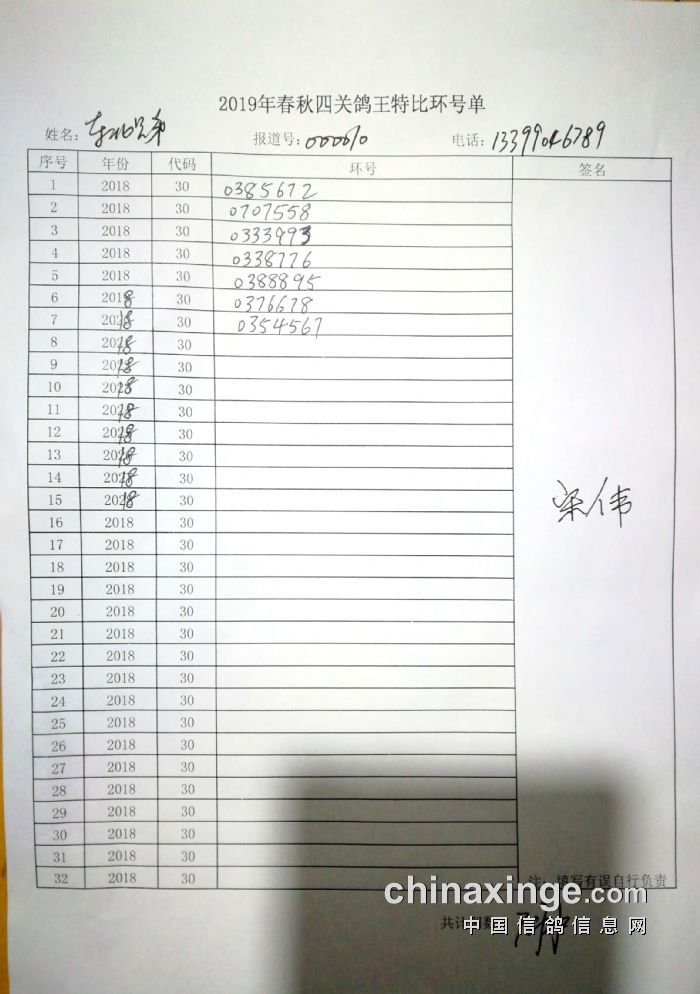 2019年春秋四关鸽王特比环号单
姓名: 东北兄弟 报道号: 000010 电话: 13399046789
序号 年份 代码 环号 签名
1 2018 30 0385672
2 2018 30 0707558
3 2018 30 0333993
4 2018 30 0338776
5 2018 30 0388895
6 2018 30 0376678
7 2018 30 0354567
8 2018 30
9 2018 30
10 2018 30
11 2018 30
12 2018 30
13 2018 30
14 2018 30
15 2018 30
梁伟
16 2018 30
17 2018 30
18 2018 30
19 2018 30
20 2018 30
21 2018 30
22 2018 30
23 2018 30
24 2018 30
25 2018 30
26 2018 30
27 2018 30
28 2018 30
29 2018 30
30 2018 30
31 2018 30
32 2018 30 注: 填写有误自行负责
chinaxinge.com
共计
中国信鸽信息网